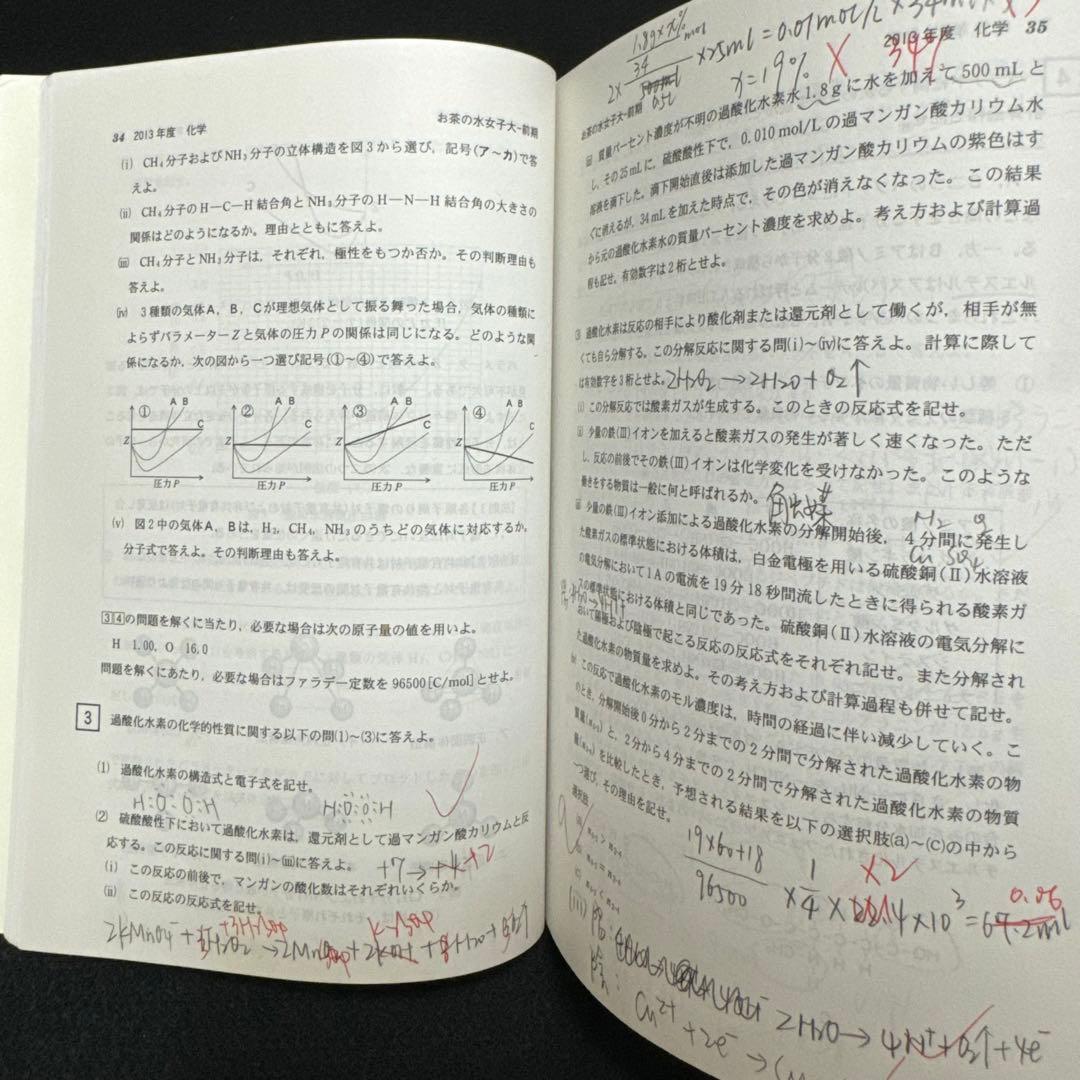 34 2013年度 化学
お茶の水女子大-前期
(i) CH₄分子およびNH₃分子の立体構造を図3から選び，記号(ア～カ)で答
えよ。
(ii) CH₄分子のH—C—H結合角とNH₃分子のH—N—H結合角の大きさの
関係はどのようになるか。理由とともに答えよ。
(iii) CH₄分子とNH₃分子は，それぞれ，極性をもつか否か。その判断理由も
答えよ。
(iv) 3種類の気体A，B，Cが理想気体として振る舞った場合，気体の種類に
よらずパラメーターZと気体の圧力Pの関係は同じになる。どのような関
係になるか，次の図から一つ選び記号(①～④)で答えよ。
① A B C Z 圧力P
② A B C Z 圧力P
③ A B C Z 圧力P
④ A B C Z 圧力P
(v) 図2中の気体A，Bは，H₂，CH₄，NH₃のうちどの気体に対応するか，
分子式で答えよ。その判断理由も答えよ。
3 4の問題を解くに当たり，必要な場合は次の原子量の値を用いよ。
H 1.00, O 16.0
問題を解くにあたり，必要な場合はファラデー定数を96500[C/mol]とせよ。
3 過酸化水素の化学的性質に関する以下の問(1)～(3)に答えよ。
(1) 過酸化水素の構造式と電子式を記せ。
H:O:O:H H:O:O:H
(2) 硫酸酸性下において過酸化水素は，還元剤として過マンガン酸カリウムと反
応する。この反応に関する問(i)～(iii)に答えよ。
+7→ +2
(i) この反応の前後で，マンガンの酸化数はそれぞれいくらか。
(ii) この反応の反応式を記せ。
2KMnO₄ + H₂O₂ →2Mn
2013年度 化学 35
x=19% × 34%
お茶の水女子大-前期
(iii) 質量パーセント濃度が不明の過酸化水素水1.8gに水を加えて500 mLと
し，その25 mLに，硫酸酸性下で，0.010 mol/Lの過マンガン酸カリウム水
溶液を滴下した。滴下開始直後は添加した過マンガン酸カリウムの紫色はす
ぐに消えるが，34 mLを加えた時点で，その色が消えなくなった。この結果
から元の過酸化水素水の質量パーセント濃度を求めよ。考え方および計算過
程も記せ。有効数字は2桁とせよ。
(3) 過酸化水素は反応の相手により酸化剤または還元剤として働くが，相手が無
くても自ら分解する。この分解反応に関する問(i)～(iv)に答えよ。計算に際して
は有効数字を3桁とせよ。
2H₂O₂→2H₂O+O₂↑
(i) この分解反応では酸素ガスが生成する。このときの反応式を記せ。
(ii) 少量の鉄(III)イオンを加えると酸素ガスの発生が著しく速くなった。ただ
し，反応の前後でその鉄(III)イオンは化学変化を受けなかった。このような
働きをする物質は一般に何と呼ばれるか。
触媒
(iii) 少量の鉄(III)イオン添加による過酸化水素の分解開始後，4分間に発生し
た酸素ガスの標準状態における体積は，白金電極を用いる硫酸銅(II)水溶液
の電気分解において1Aの電流を19分18秒間流したときに得られる酸素ガ
スの標準状態における体積と同じであった。硫酸銅(II)水溶液の電気分解に
おいて陽極および陰極で起こる反応の反応式をそれぞれ記せ。また分解され
た過酸化水素の物質量を求めよ。その考え方および計算過程も併せて記せ。
(iv) この反応で過酸化水素のモル濃度は，時間の経過に伴い減少していく。こ
のとき，分解開始後0分から2分までの2分間で分解された過酸化水素の物
質量(m₀₋₂)と，2分から4分までの2分間で分解された過酸化水素の物質
量(m₂₋₄)を比較したとき，予想される結果を以下の選択肢(a)～(c)の中から
一つ選び，その理由を記せ。
選択肢
19×60+18
96500
×2
0.06
2H₂O→4H⁺+O₂↑+4e⁻
Cu²⁺+2e⁻→